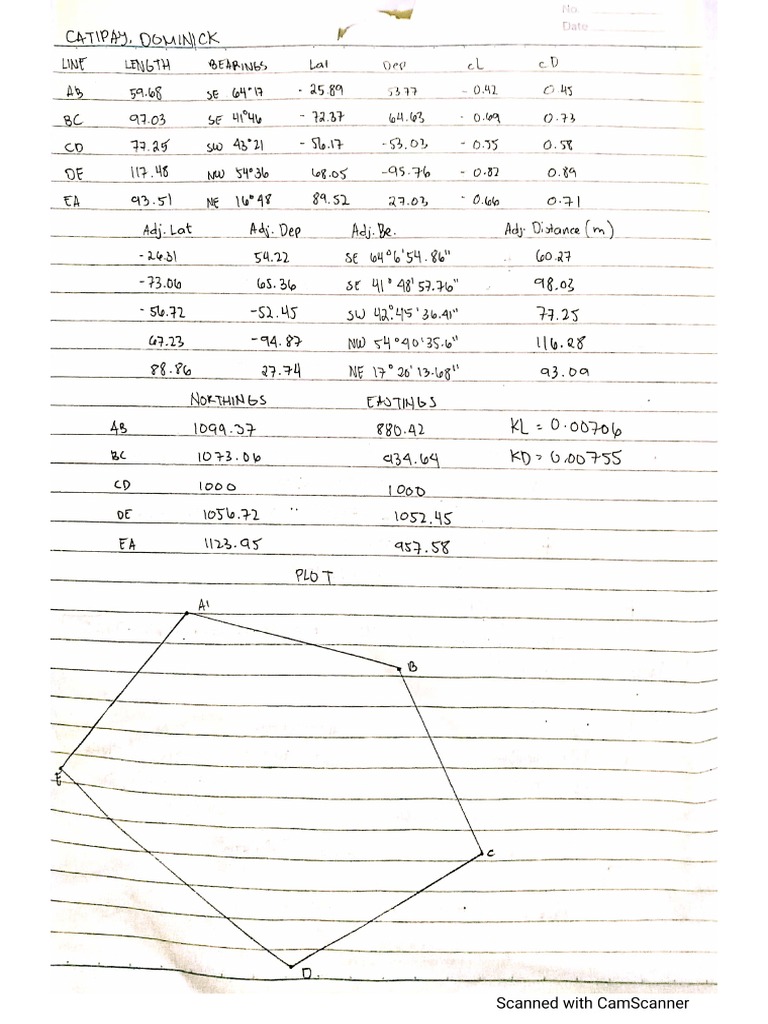 No.
Date
CATIPAY, DOMINICK
LINE LENGTH BEARINGS Lat Dep cL cD
AB 59.68 SE 64°17 - 25.89 53.77 - 0.42 0.45
BC 97.03 SE 41°46 - 72.37 64.63 - 0.69 0.73
CD 77.25 SW 43°21 - 56.17 -53.03 - 0.55 0.58
DE 117.48 NW 54°36 68.05 -95.76 - 0.82 0.89
EA 93.51 NE 16°48 89.52 27.03 - 0.66 0.71
Adj. Lat Adj. Dep Adj. Be. Adj. Distance (m)
-26.31 54.22 SE 64°6'54.86" 60.27
-73.06 65.36 SE 41°48'57.76" 98.03
-56.72 -52.45 SW 42°45'36.41" 77.25
67.23 -94.87 NW 54°40'35.6" 116.28
88.86 27.74 NE 17°20'13.68" 93.09
NORTHINGS EASTINGS
AB 1099.37 880.42 KL = 0.00706
BC 1073.06 934.64 KD = 0.00755
CD 1000 1000
DE 1056.72 1052.45
EA 1123.95 957.58
PLOT
A
B
E
C
D
Scanned with CamScanner